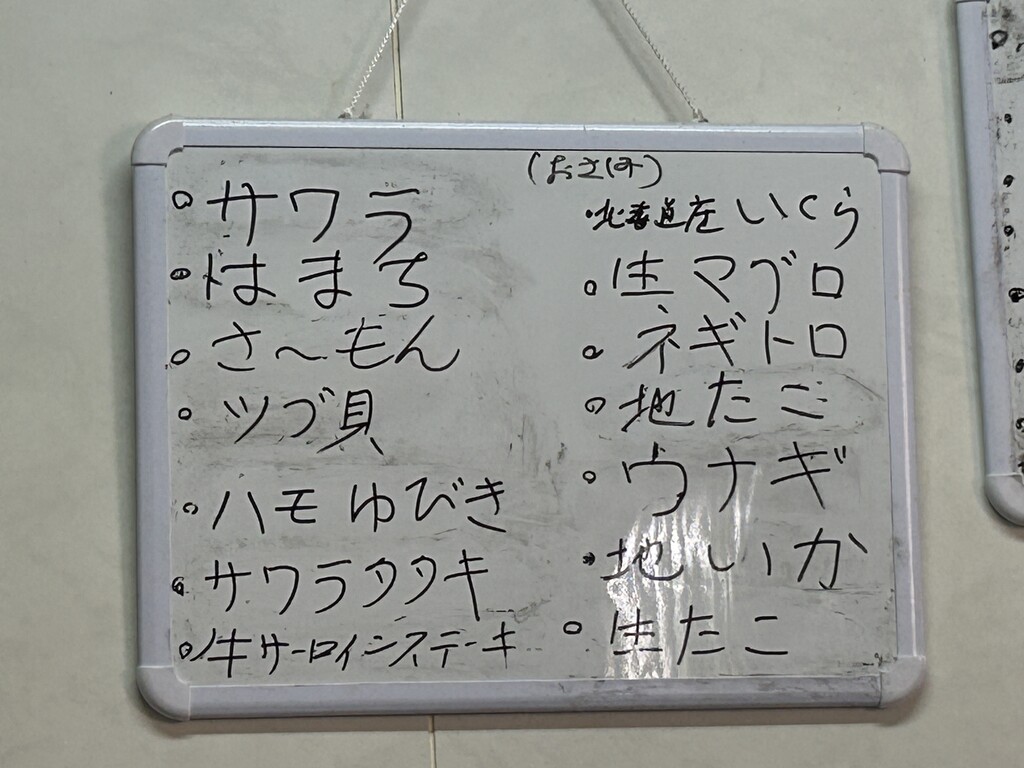 サワラ
はまち
さ〜もん
ツブ貝
ハモゆびき
サワラタタキ
牛サーロインステーキ
(おさしみ)
北海道産いくら
生マグロ
ネギトロ
地たこ
ウナギ
地いか
生たこ